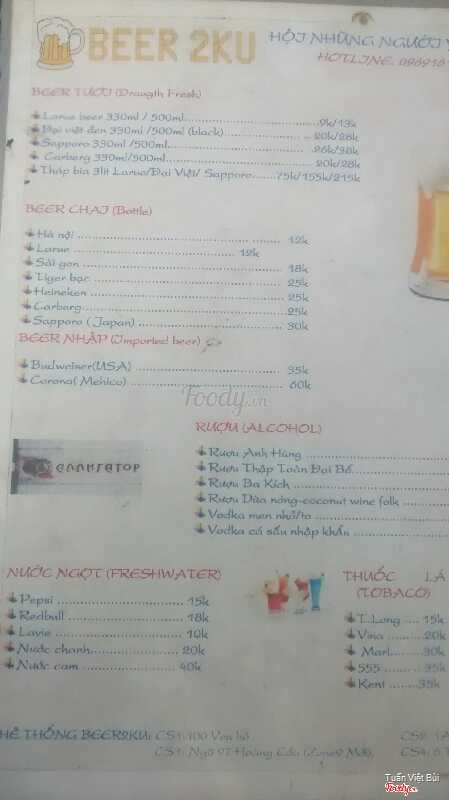 BEER 2KU
HỘI NHỮNG NGƯỜI
HOTLINE: 096916
BEER TƯƠI (Draugth Fresh)
Larue beer 330ml / 500ml.....9k/13k
Đại việt đen 330ml /500ml (black)..... 20k/28k
Sapporo 330ml /500ml..... 26k/38k
Carberg 330ml/500ml..... 20k/28k
Tháp bia 3lit Larue/Đại Việt/ Sapporo.....75k/155k/215k
BEER CHAI (Bottle)
Hà nội ..... 12k
Larue ..... 12k
Sài gon ..... 18k
Tiger bạc ..... 25k
Heineken ..... 25k
Carberg ..... 25k
Sapporo ( Japan) ..... 30k
BEER NHẬP (Imported beer)
Budweiner(USA) ..... 35k
Corona( Mehico) ..... 60k
Foody.vn
RƯỢU (ALCOHOL)
Rượu Anh Hùng
Rượu Thập Toàn Đại Bổ
Rượu Ba Kích
Rượu Dừa nóng-coconut wine folk
Vodka men nhỏ/to
Vodka cá sấu nhập khẩu
NƯỚC NGỌT (FRESHWATER)
Pepsi ..... 15k
Redbull ..... 18k
Lavie ..... 10k
Nước chanh ..... 20k
Nước cam ..... 40k
THUỐC LÁ
(TOBACO)
T.Long .... 15k
Vina .....20k
Marl.....30k
555 ..... 35k
Kent .....35k
HỆ THỐNG BEER2KU: CS1: 100 Vạn bả
CS3: Ngõ 97 Hoàng Cầu
CS2:
CS4:
Tuấn Việt Bùi
Foody.vn